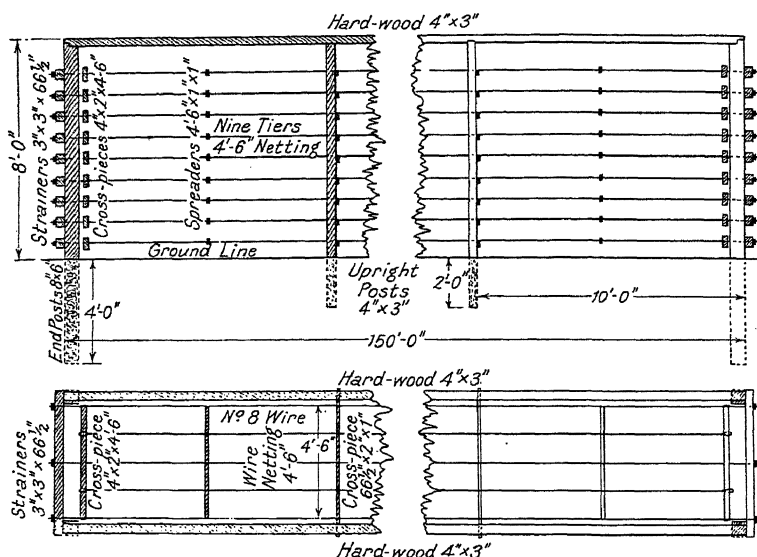 Hard-wood 4"×3"
8'-0"
Strainers 3"×3"×66½"
Cross-pieces 4"×2"×4-6"
Spreaders 4'-6"×1"×1"
Nine Tiers
4'-6" Netting
Ground Line
End Posts 8"×6"
4'-0"
Upright
Posts
4"×3"
2'-0"
10'-0"
150'-0"
Hard-wood 4"×3"
Strainers
3"×3"×66½"
Cross-piece
4"×2"×4-6"
Nº 8 Wire
Wire
Netting
4'-6"
4'-6"
Cross-piece
66½"×2"×1"
Hard-wood 4"×3"